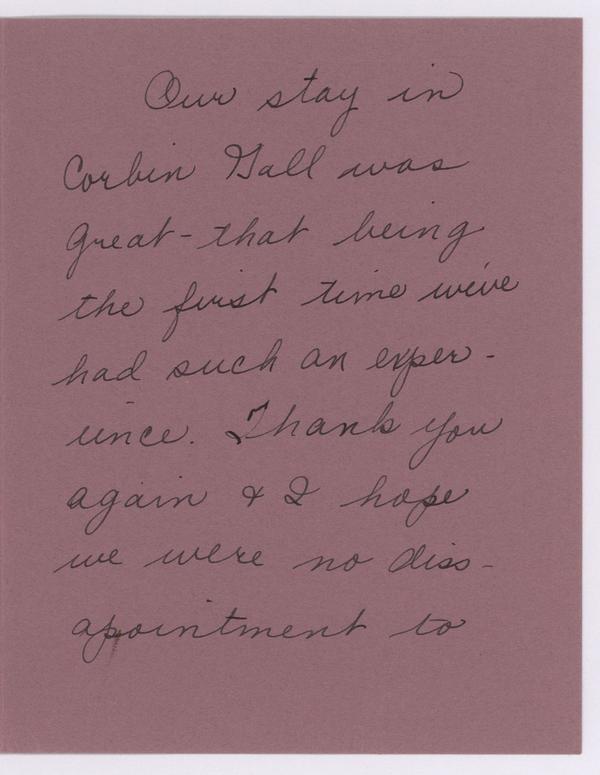 Our stay in
Corbin Hall was
great - that being
the first time we've
had such an exper-
ience. Thank you
again & I hope
we were no diss-
apointment to